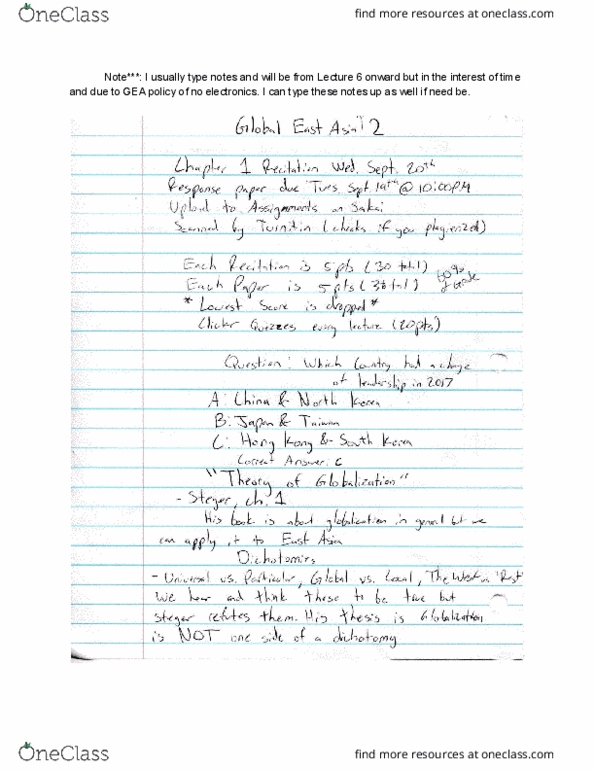 OneClass
find more resources at oneclass.com
Note***: I usually type notes and will be from Lecture 6 onward but in the interest of time
and due to GEA policy of no electronics. I can type these notes up as well if need be.
Global East Asia 2
Chapter 1 Recitation Wed. Sept. 20th
Response paper due Tues. Sept. 19th @ 10:00PM
Upload to Assignments on Sakai
Scanned by Turnitin (checks if you plagierized)
Each Recitation is 5pts (30 total)
Each Paper is 5pts (30 total)
60% of Grade
*Lowest Score is dropped*
Clicker Quizzes every lecture (20pts)
Question: Which Country had a change
of leadership in 2017
A: China & North Korea
B: Japan & Taiwan
C: Hong Kong & South Korea
Correct Answer: C
"Theory of Globalization"
- Steger, ch. 1
His book is about globalization in general but we
can apply it to East Asia
Dichotomies
- Universal vs. Particular, Global vs. Local, The West vs. 'Rest'
We hear and think these to be true but
Steger refutes them. His thesis is Globalization
is NOT one side of a dichotomy
OneClass
find more resources at oneclass.com